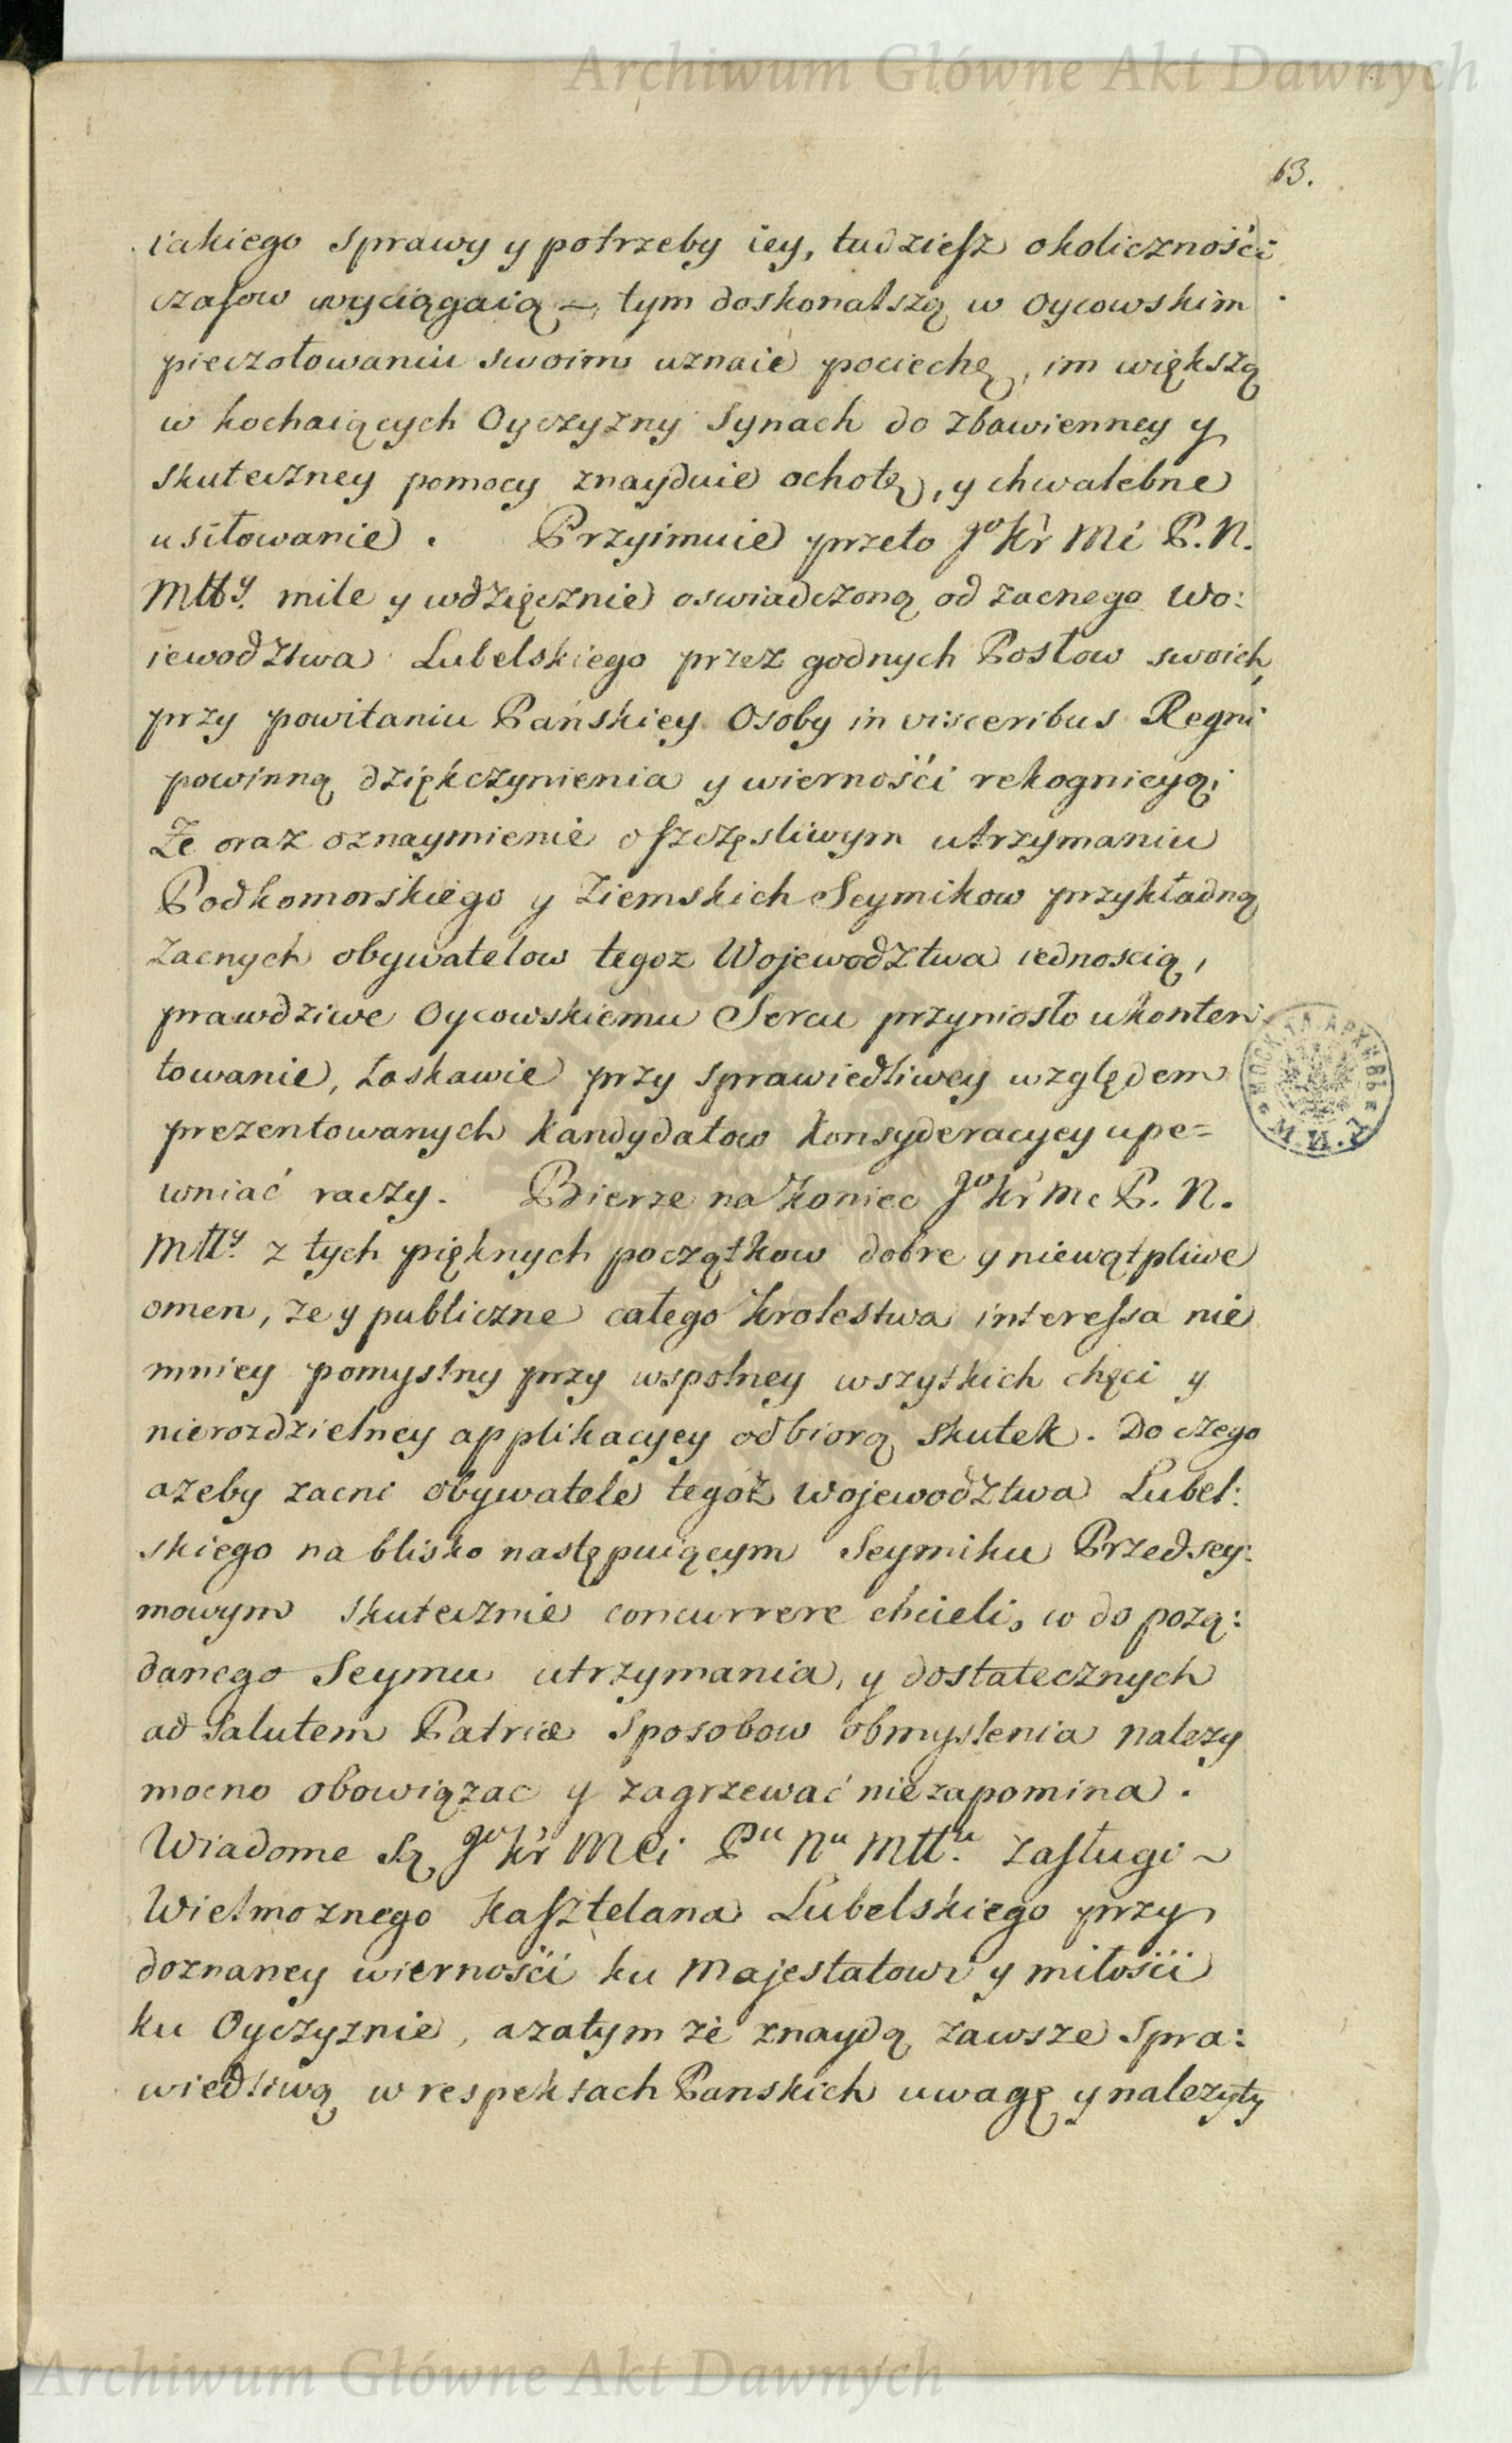 Archiwum Główne Akt Dawnych
63.
iakiego sprawy y potrzeby iey, tudziesz okoliczności
czasow wyciągaią, tym doskonalszą w Oycowskim
pieczołowaniu swoim uznaie pociechę, im większą
w kochaiących Oyczyzny Synach do zbawienney y
skuteczney pomocy znayduie ochotę, y chwalebne
usiłowanie. Przyimuie przeto Jo Kr Mć P. N.
Mtty. mile y wdzięcznie oswiadczoną od zacnego Wo:
iewodztwa Lubelskiego przez godnych Posłow swoich,
przy powitaniu Pańskiey Osoby in visceribus Regni
powinną dziękczynienia y wierności rekognicyą;
Że oraz oznaymienie o szczęsliwym utrzymaniu
Podkomorskiego y Ziemskich Seymikow przykładną
zacnych obywatelow tegoz Wojewodztwa iednoscią,
prawdziwe Oycowskiemu Sercu przyniosło ukonten
towanie, łaskawie przy sprawiedliwey względem
prezentowanych Kandydatow Konsyderacyey upe=
wniać raczy. Bierze na koniec Jo Kr Mc P. N.
Mtty. z tych pięknych początkow dobre y niewątpliwe
omen, ze y publiczne całego Krolestwa interessa nie
mniey pomyslny przy wspolney wszytkich chęci y
nierozdzielney applikacyey odbiorą skutek. Do czego
azeby zacni obywatele tegoż Wojewodztwa Lubel:
skiego na blisko następuiącym Seymiku Przedsey:
mowym skutecznie concurrere chcieli, co do pozą:
danego Seymu utrzymania, y dostatecznych
ad salutem Patriæ sposobow obmyslenia nalezy
mocno obowiązac y zagrzewać niezapomina.
Wiadome Są Jo Kr Mći Pu Nu Mttu. zasługi
Wielmoznego Kasztelana Lubelskiego przy
doznaney wierności ku Majestatowi y miłości
ku Oyczyznie, azatym że znaydą zawsze Spra:
wiedliwą w respektach Panskich uwagę y nalezyty
Archiwum Główne Akt Dawnych